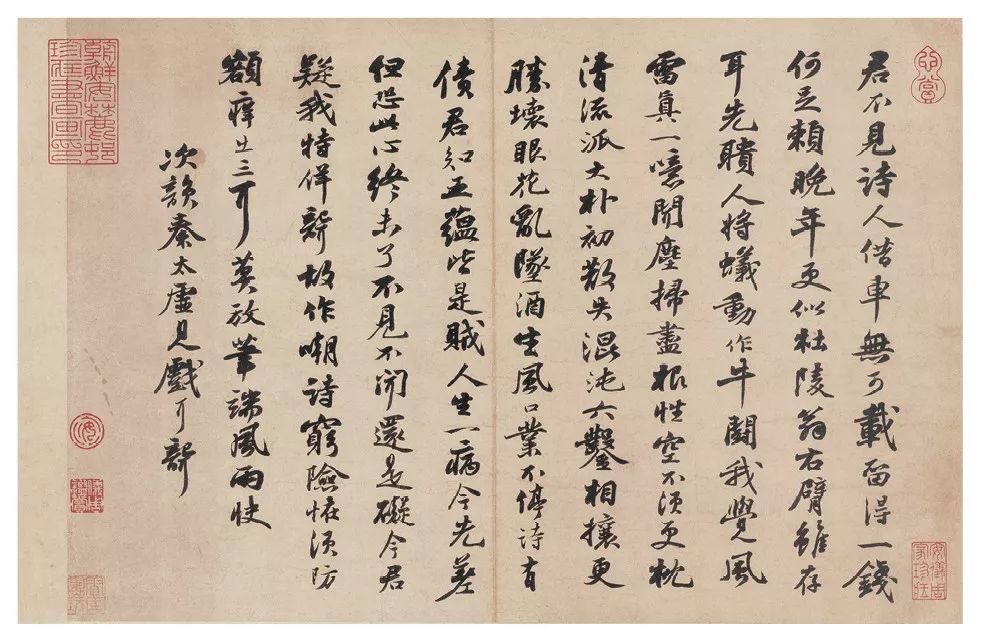 君不見詩人借車無可載留得一錢
何足賴晚年更似杜陵翁右臂雖存
耳先聵人將蟻動作牛鬪我覺風
雷真一噫聞塵掃盡根性空不須更枕
清流派大朴初散失混沌六鑿相攘更
勝壞眼花亂墜酒生風口業不停詩有
債君知五蘊皆是賊人生一病今先差
但恐此心終未了不見不聞還是礙今君
疑我特佯聾故作嘲詩窮險怪須防
額癢出三耳莫放筆端風雨快
次韻秦太虛見戲耳聾
安儀周
家珍藏
朝鮮安麓邨
珍藏書畫印